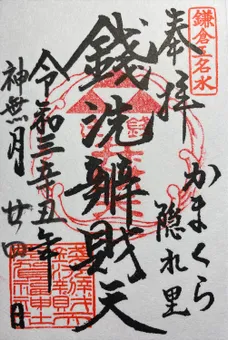 鎌倉五名水
奉拝
かまくら
隠れ里
銭洗辨財天
令和三辛丑年
神無月 廿四日